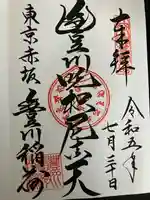 奉拝
令和五年
七月三十日
豊川吒枳尼真天
東京赤坂
豊川稲荷